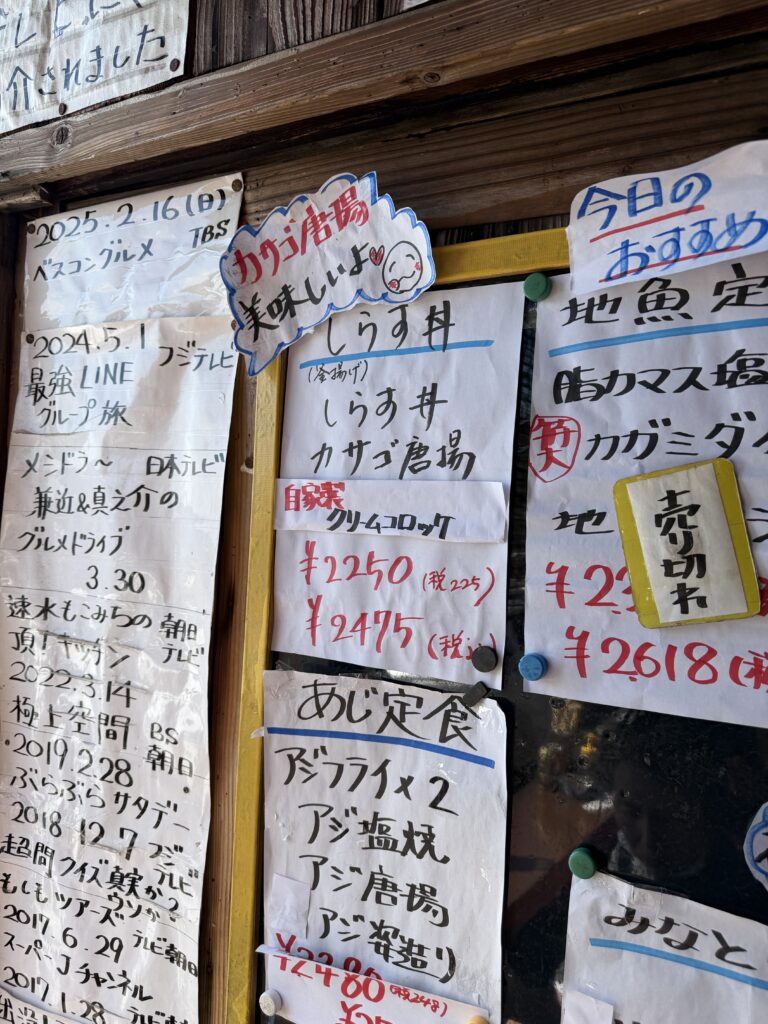 介されました
2025.2.16(日)
ベスコングルメ TBS
2024.5.1
フジテレビ
最強LINE
グループ旅
メシドラ～ 日本テレビ
兼近&真之介の
グルメドライブ
3.30
速水もこみちの 朝日
頂!キッチン テレビ
2022.3.14
極上空間 BS
朝日
2019.2.28
ぶらぶらサタデー
2018.12.7 フジ
テレビ
超問クイズ真実か?
ウソか?
もしもツアーズ
2017.6.29 テレビ朝日
スーパーJチャンネル
2017.1.28
カサゴ唐揚
美味しいよ
しらす丼
(釜揚げ)
しらす丼
カサゴ唐揚
自家製
クリームコロッケ
¥2250 (税225)
¥2475 (税込)
あじ定食
アジフライ×2
アジ塩焼
アジ唐揚
アジ姿造り
¥2480 (税248)
今日の
おすすめ
地魚定
脂カマス塩
カガミダイ
地
売り切れ
¥2,618
みなと